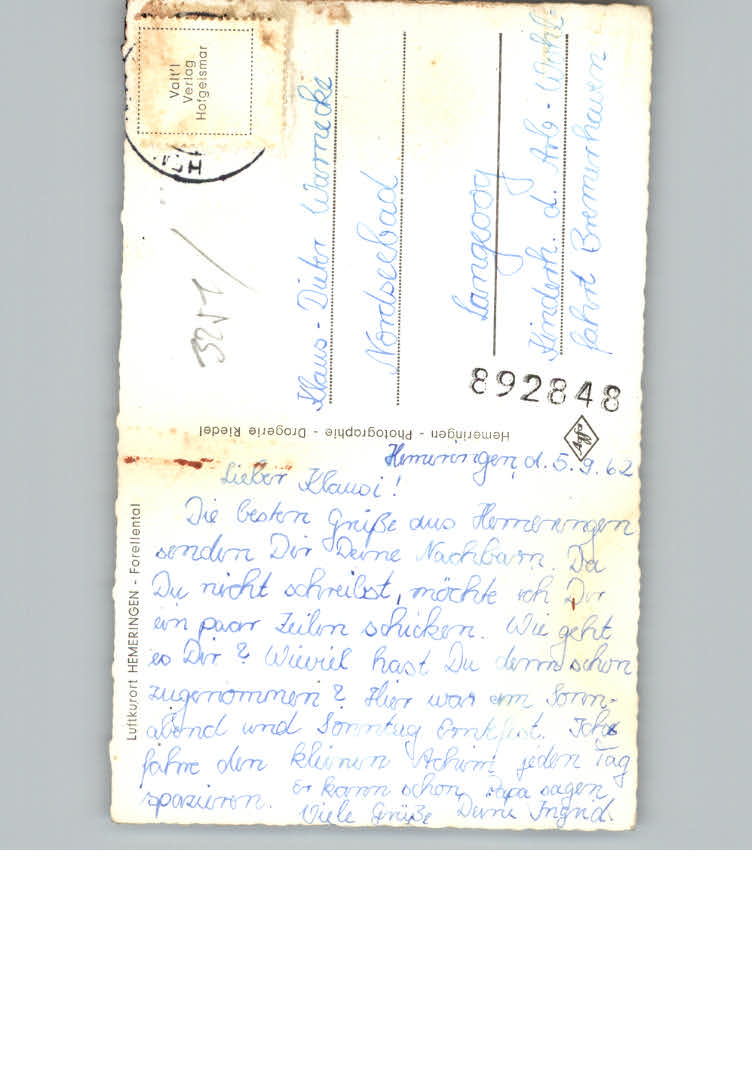 Valt'l
Verlag
Hofgeismar
3251
Klaus-Dieter Warnecke
Nordseebad
Langeoog
Kinderh. d. Arb.-Wohl-
fahrt Bremerhaven
892848
Agfa
Hemeringen - Photographie - Drogerie Riedel
Luftkurort HEMERINGEN - Forellental
Hemeringen, d. 5.9.62
Lieber Klausi!
Die besten Grüße aus Hemeringen
senden Dir Deine Nachbarn. Da
Du nicht schreibst, möchte ich Dir
ein paar Zeilen schicken. Wie geht
es Dir? Wieviel hast Du denn schon
zugenommen? Hier war am Sonn-
abend und Sonntag Erntefest. Ich
fahre den kleinen Achim jeden Tag
spazieren. Er kann schon Papa sagen.
Viele Grüße Deine Ingrid.